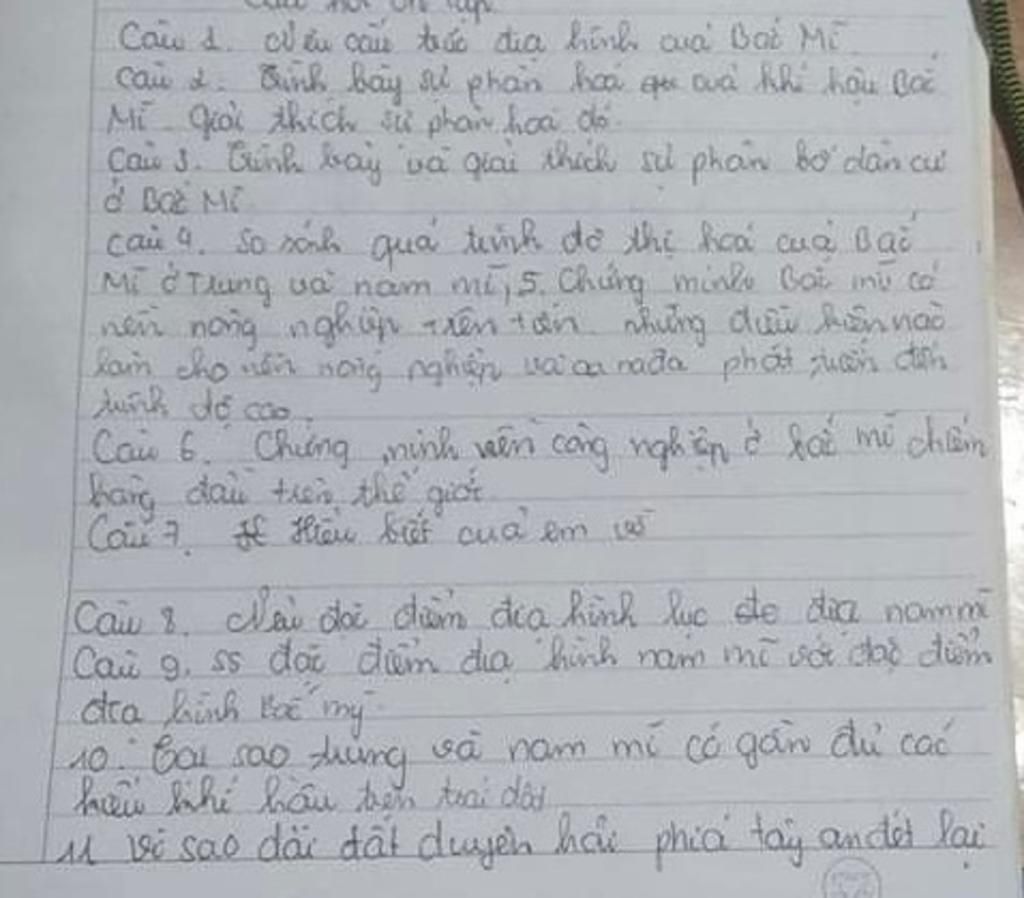 Câu hỏi ôn tập
Câu 1. Nêu cấu trúc địa hình của Bắc Mĩ
Câu 2. Trình bày sự phân hoá của khí hậu Bắc
Mĩ. Giải thích sự phân hoá đó.
Câu 3. Trình bày và giải thích sự phân bố dân cư
ở Bắc Mĩ
Câu 4. So sánh quá trình đô thị hoá của Bắc
Mĩ ở Trung và nam mĩ, 5. Chứng minh Bắc mĩ có
nền nông nghiệp tiên tiến những điều kiện nào
làm cho nền nông nghiệp và canađa phát triển đến
trình độ cao.
Câu 6. Chứng minh nền công nghiệp ở bắc mĩ chiếm
hàng đầu trên thế giới
Câu 7. Hiểu biết của em về
Câu 8. Nêu đặc điểm địa hình lục địa nam mĩ
Câu 9. SS đặc điểm địa hình nam mĩ với đặc điểm
địa hình Bắc mỹ
10. Tại sao trung và nam mĩ có gần đủ các
kiểu khí hậu trên trái đất
11 vì sao dải đất duyên hải phía tây anđét lại